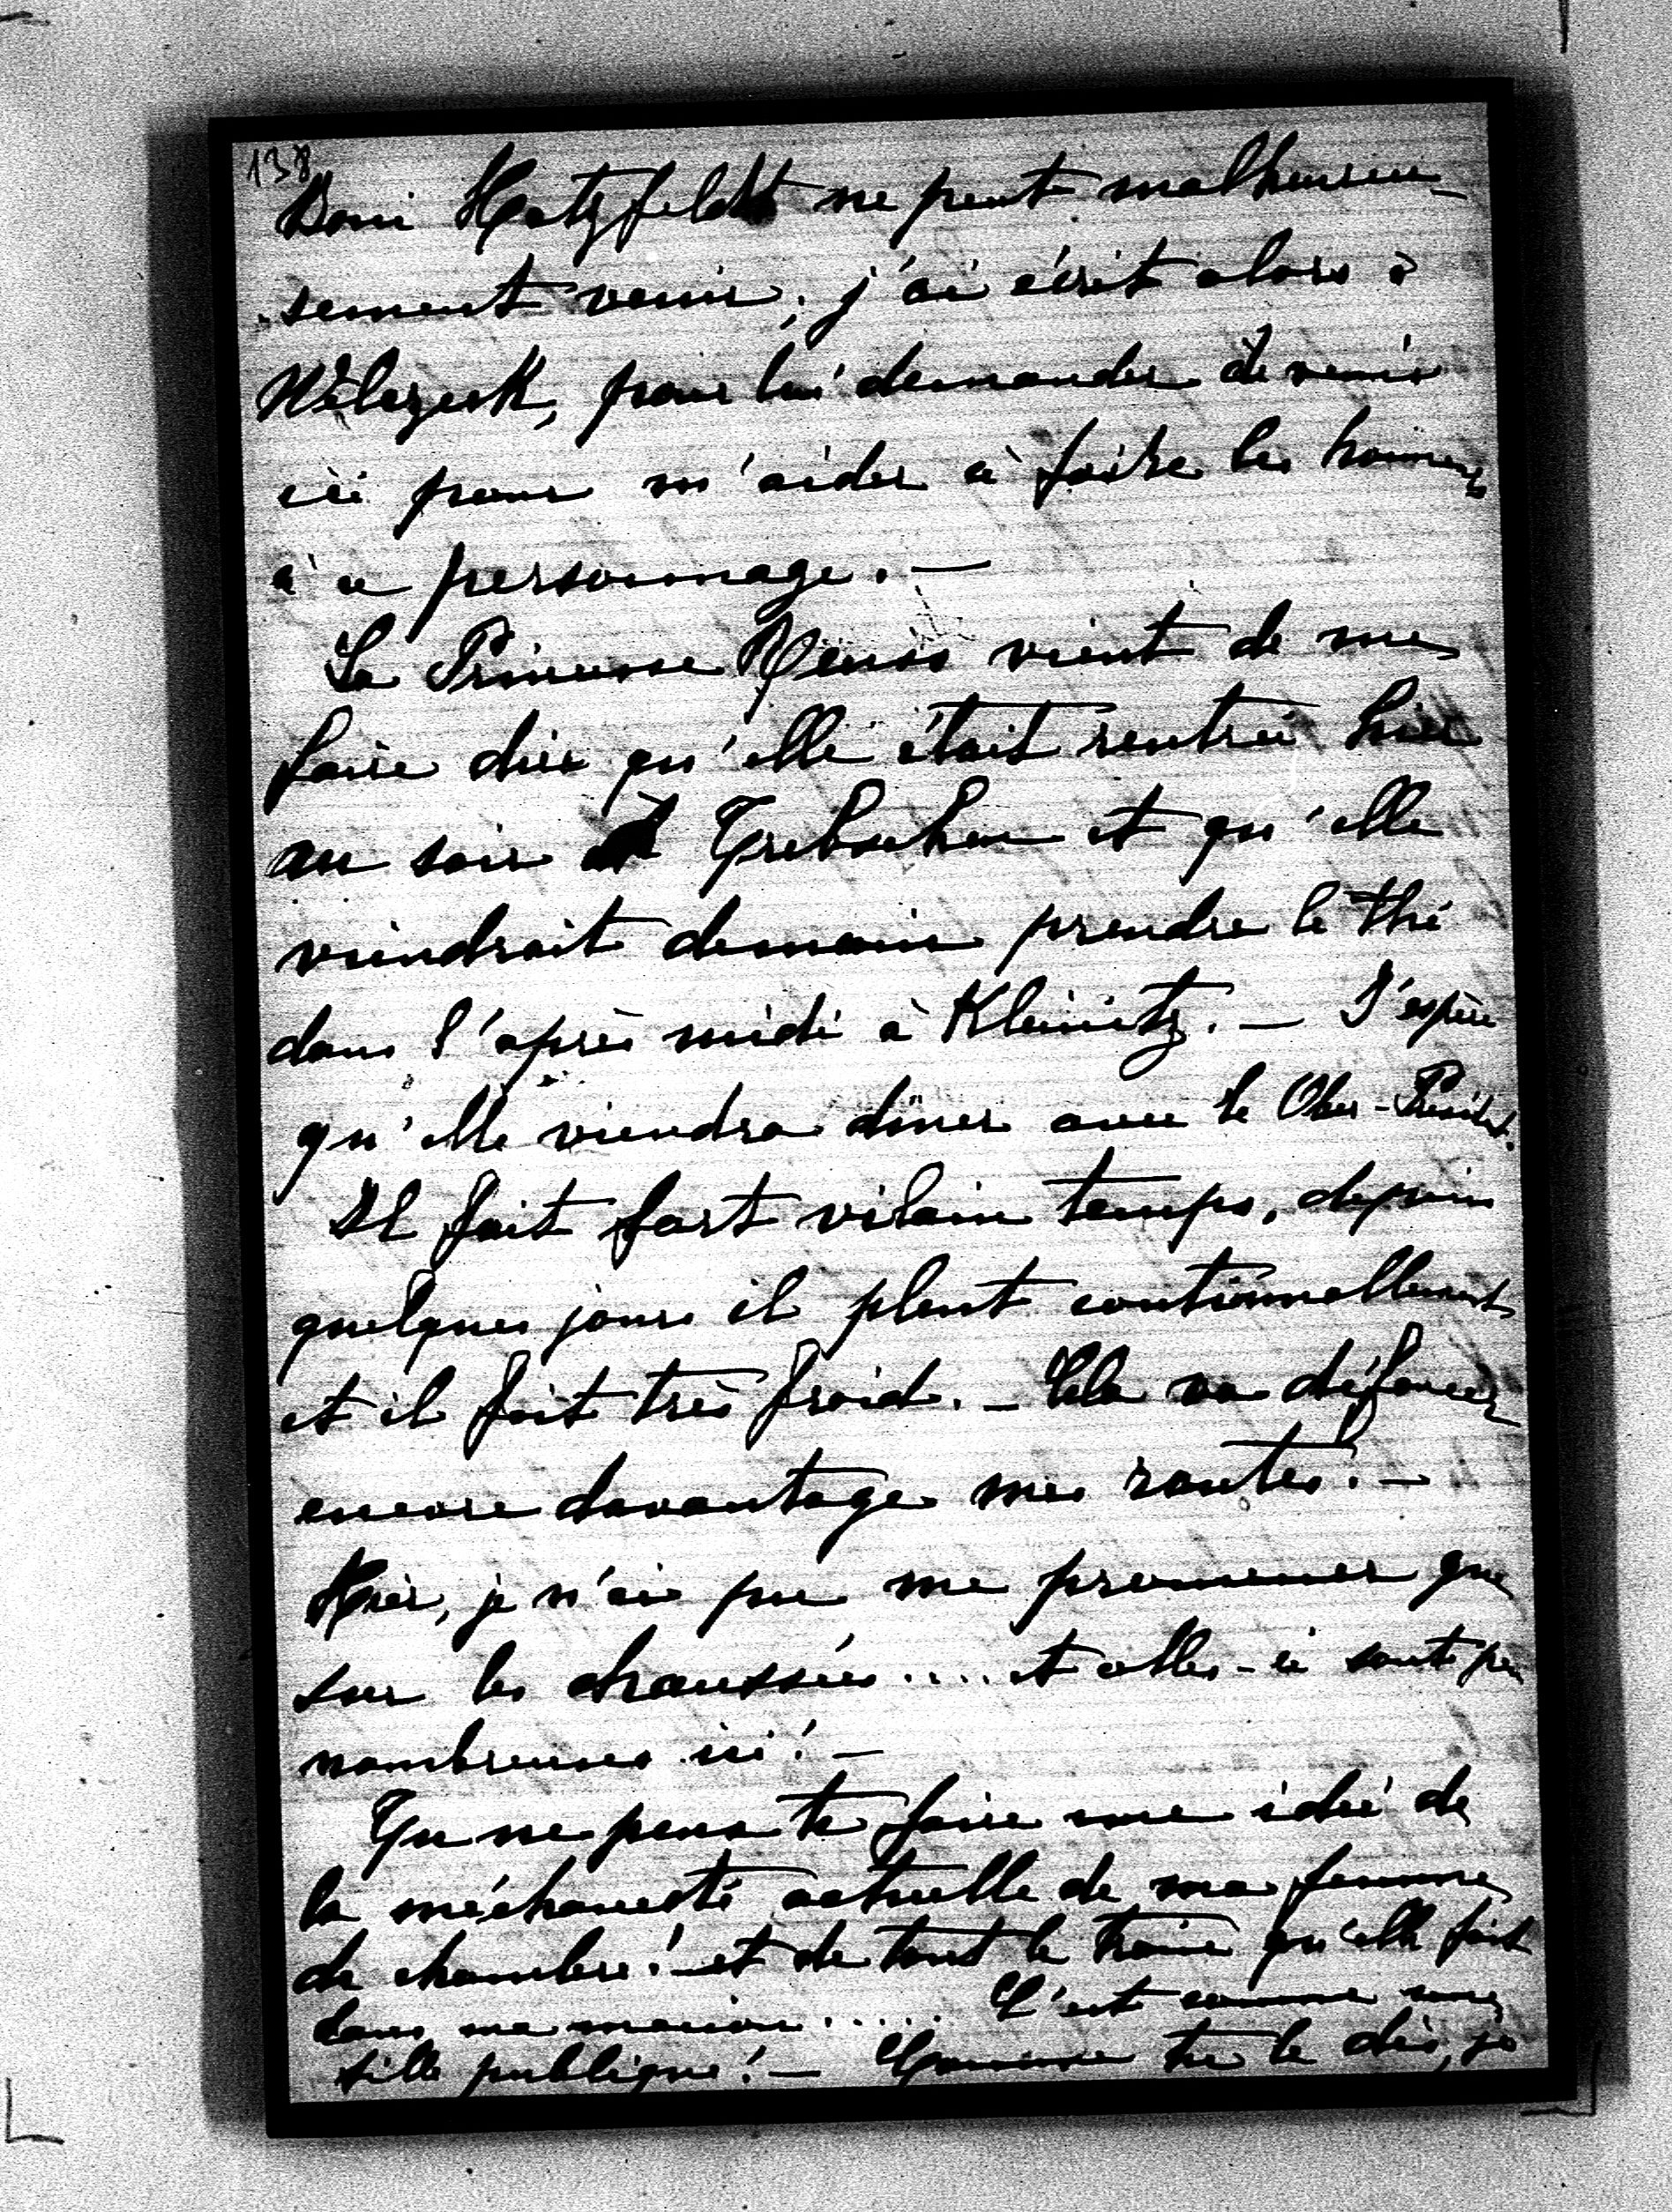 138
Boni Hatzfeldt ne peut malheureu-
sement venir; j'ai écrit alors à
Welczeck, pour lui demander de venir
ici pour m'aider à faire les honneurs
à ce personnage. —
La Princesse Reuss vient de me
faire dire qu'elle était rentrée hier
au soir à Trebschen et qu'elle
viendrait demain prendre le thé
dans l'après midi à Kleinitz. — J'espère
qu'elle viendra dîner avec le Ober-Président.
Il fait fort vilain temps, depuis
quelques jours il pleut continuellement
et il fait très froid. — Cela va défoncer
encore davantage mes routes! —
Hier, je n'ai pu me promener que
sur les chaussées .... et celles-ci sont peu
nombreuses ici! —
Tu ne peux te faire une idée de
la méchanceté actuelle de ma femme
de chambre! — et de tout le train qu'elle fait
dans ma maison ..... C'est comme une
fille publique! — Comme tu le dis, je